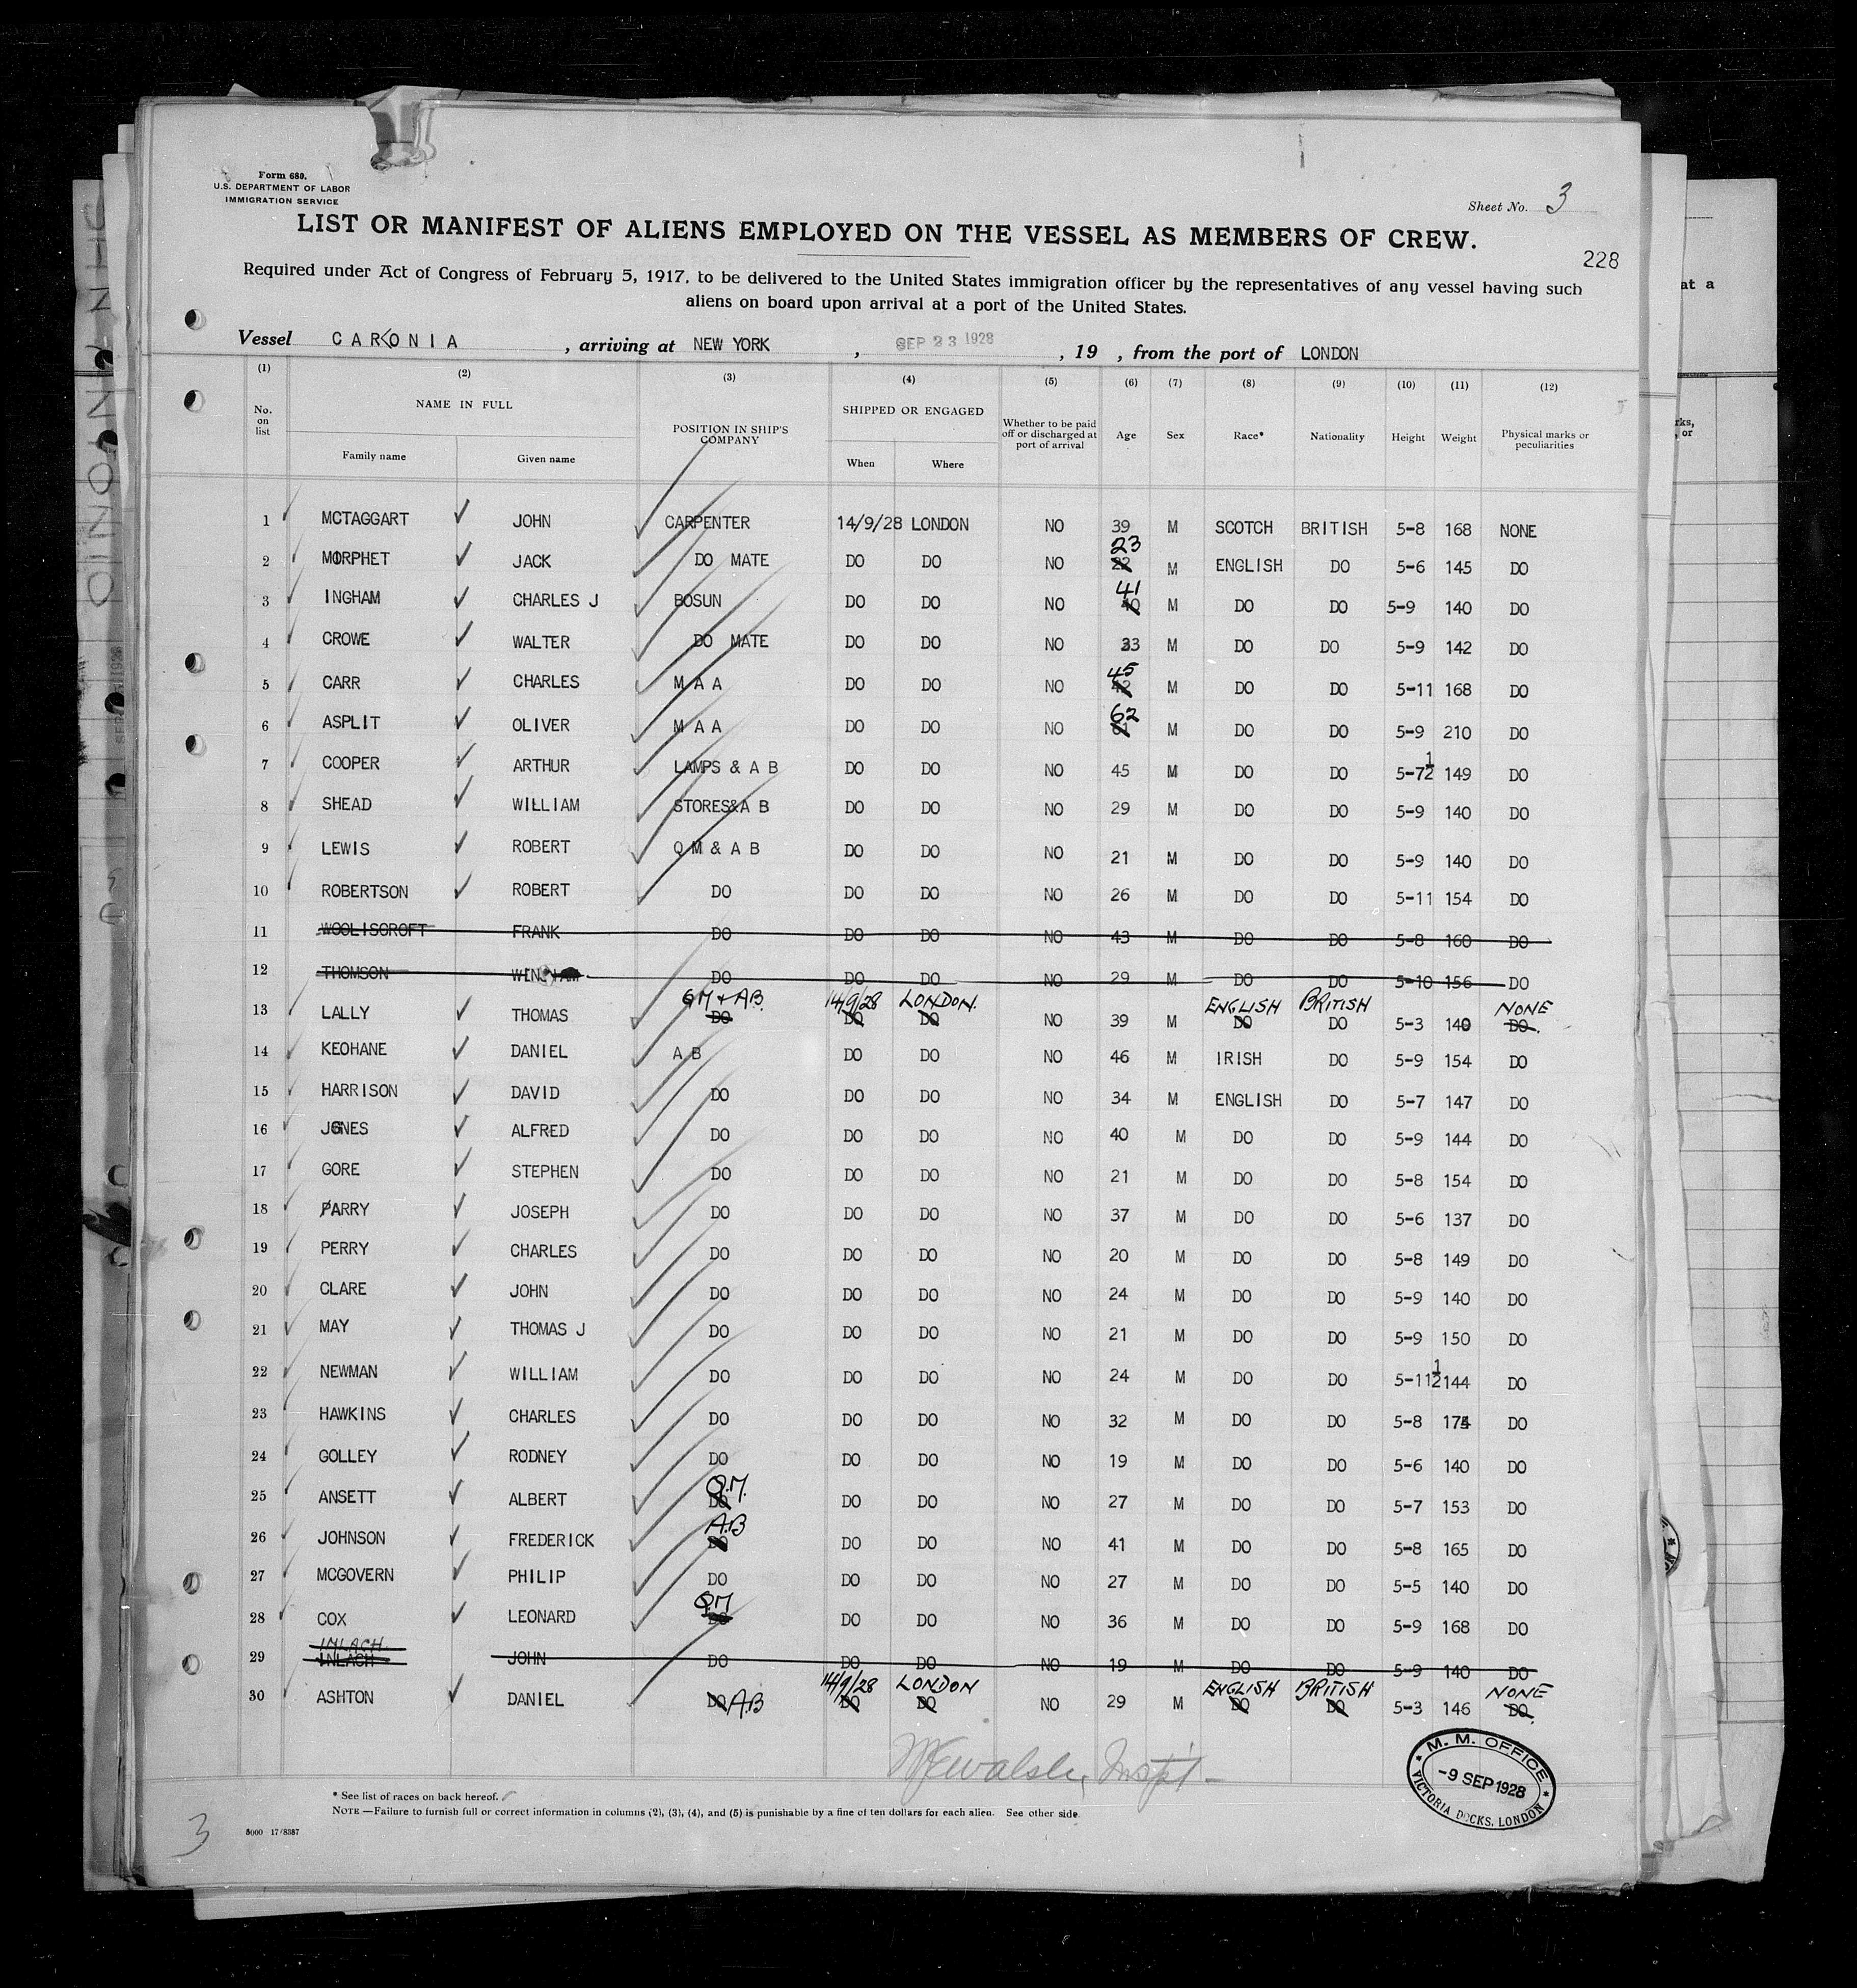 Form 680.
U.S. DEPARTMENT OF LABOR
IMMIGRATION SERVICE
Sheet No. 3
LIST OR MANIFEST OF ALIENS EMPLOYED ON THE VESSEL AS MEMBERS OF CREW.
228
Required under Act of Congress of February 5, 1917, to be delivered to the United States immigration officer by the representatives of any vessel having such
aliens on board upon arrival at a port of the United States.
Vessel CARONIA, arriving at NEW YORK, SEP 23 1928, 19 , from the port of LONDON
(1) (2) (3) (4) (5) (6) (7) (8) (9) (10) (11) (12)
No. on list NAME IN FULL Family name Given name POSITION IN SHIP'S COMPANY SHIPPED OR ENGAGED When Where Whether to be paid off or discharged at port of arrival Age Sex Race* Nationality Height Weight Physical marks or peculiarities
1 MCTAGGART JOHN CARPENTER 14/9/28 LONDON NO 39 M SCOTCH BRITISH 5-8 168 NONE
2 MORPHET JACK DO MATE DO DO NO 23 22 M ENGLISH DO 5-6 145 DO
3 INGHAM CHARLES J BOSUN DO DO NO 41 40 M DO DO 5-9 140 DO
4 CROWE WALTER DO MATE DO DO NO 33 M DO DO 5-9 142 DO
5 CARR CHARLES M A A DO DO NO 45 42 M DO DO 5-11 168 DO
6 ASPLIT OLIVER M A A DO DO NO 62 61 M DO DO 5-9 210 DO
7 COOPER ARTHUR LAMPS & A B DO DO NO 45 M DO DO 5-7½ 149 DO
8 SHEAD WILLIAM STORES&A B DO DO NO 29 M DO DO 5-9 140 DO
9 LEWIS ROBERT Q M & A B DO DO NO 21 M DO DO 5-9 140 DO
10 ROBERTSON ROBERT DO DO DO NO 26 M DO DO 5-11 154 DO
11 WOOLISCROFT FRANK DO DO DO NO 43 M DO DO 5-8 160 DO
12 THOMSON DO DO DO NO 29 M DO DO 5-10 156 DO
13 LALLY THOMAS QM & AB. DO 14/9/28 DO LONDON. DO NO 39 M ENGLISH DO BRITISH DO 5-3 140 NONE DO.
14 KEOHANE DANIEL A B DO DO NO 46 M IRISH DO 5-9 154 DO
15 HARRISON DAVID DO DO DO NO 34 M ENGLISH DO 5-7 147 DO
16 JONES ALFRED DO DO DO NO 40 M DO DO 5-9 144 DO
17 GORE STEPHEN DO DO DO NO 21 M DO DO 5-8 154 DO
18 PARRY JOSEPH DO DO DO NO 37 M DO DO 5-6 137 DO
19 PERRY CHARLES DO DO DO NO 20 M DO DO 5-8 149 DO
20 CLARE JOHN DO DO DO NO 24 M DO DO 5-9 140 DO
21 MAY THOMAS J DO DO DO NO 21 M DO DO 5-9 150 DO
22 NEWMAN WILLIAM DO DO DO NO 24 M DO DO 5-11½ 144 DO
23 HAWKINS CHARLES DO DO DO NO 32 M DO DO 5-8 174 DO
24 GOLLEY RODNEY DO DO DO NO 19 M DO DO 5-6 140 DO
25 ANSETT ALBERT Q.M. DO DO DO NO 27 M DO DO 5-7 153 DO
26 JOHNSON FREDERICK A.B DO DO DO NO 41 M DO DO 5-8 165 DO
27 MCGOVERN PHILIP DO DO DO NO 27 M DO DO 5-5 140 DO
28 COX LEONARD QM DO DO DO NO 36 M DO DO 5-9 168 DO
29 IMLACH INLACH JOHN DO DO DO NO 19 M DO DO 5-9 140 DO
30 ASHTON DANIEL DO A.B 14/9/28 DO LONDON DO NO 29 M ENGLISH DO BRITISH DO 5-3 146 NONE DO.
* See list of races on back hereof.
NOTE.—Failure to furnish full or correct information in columns (2), (3), (4), and (5) is punishable by a fine of ten dollars for each alien. See other side.
5000 17/8387
3
M. M. OFFICE
-9 SEP 1928
VICTORIA DOCKS, LONDON